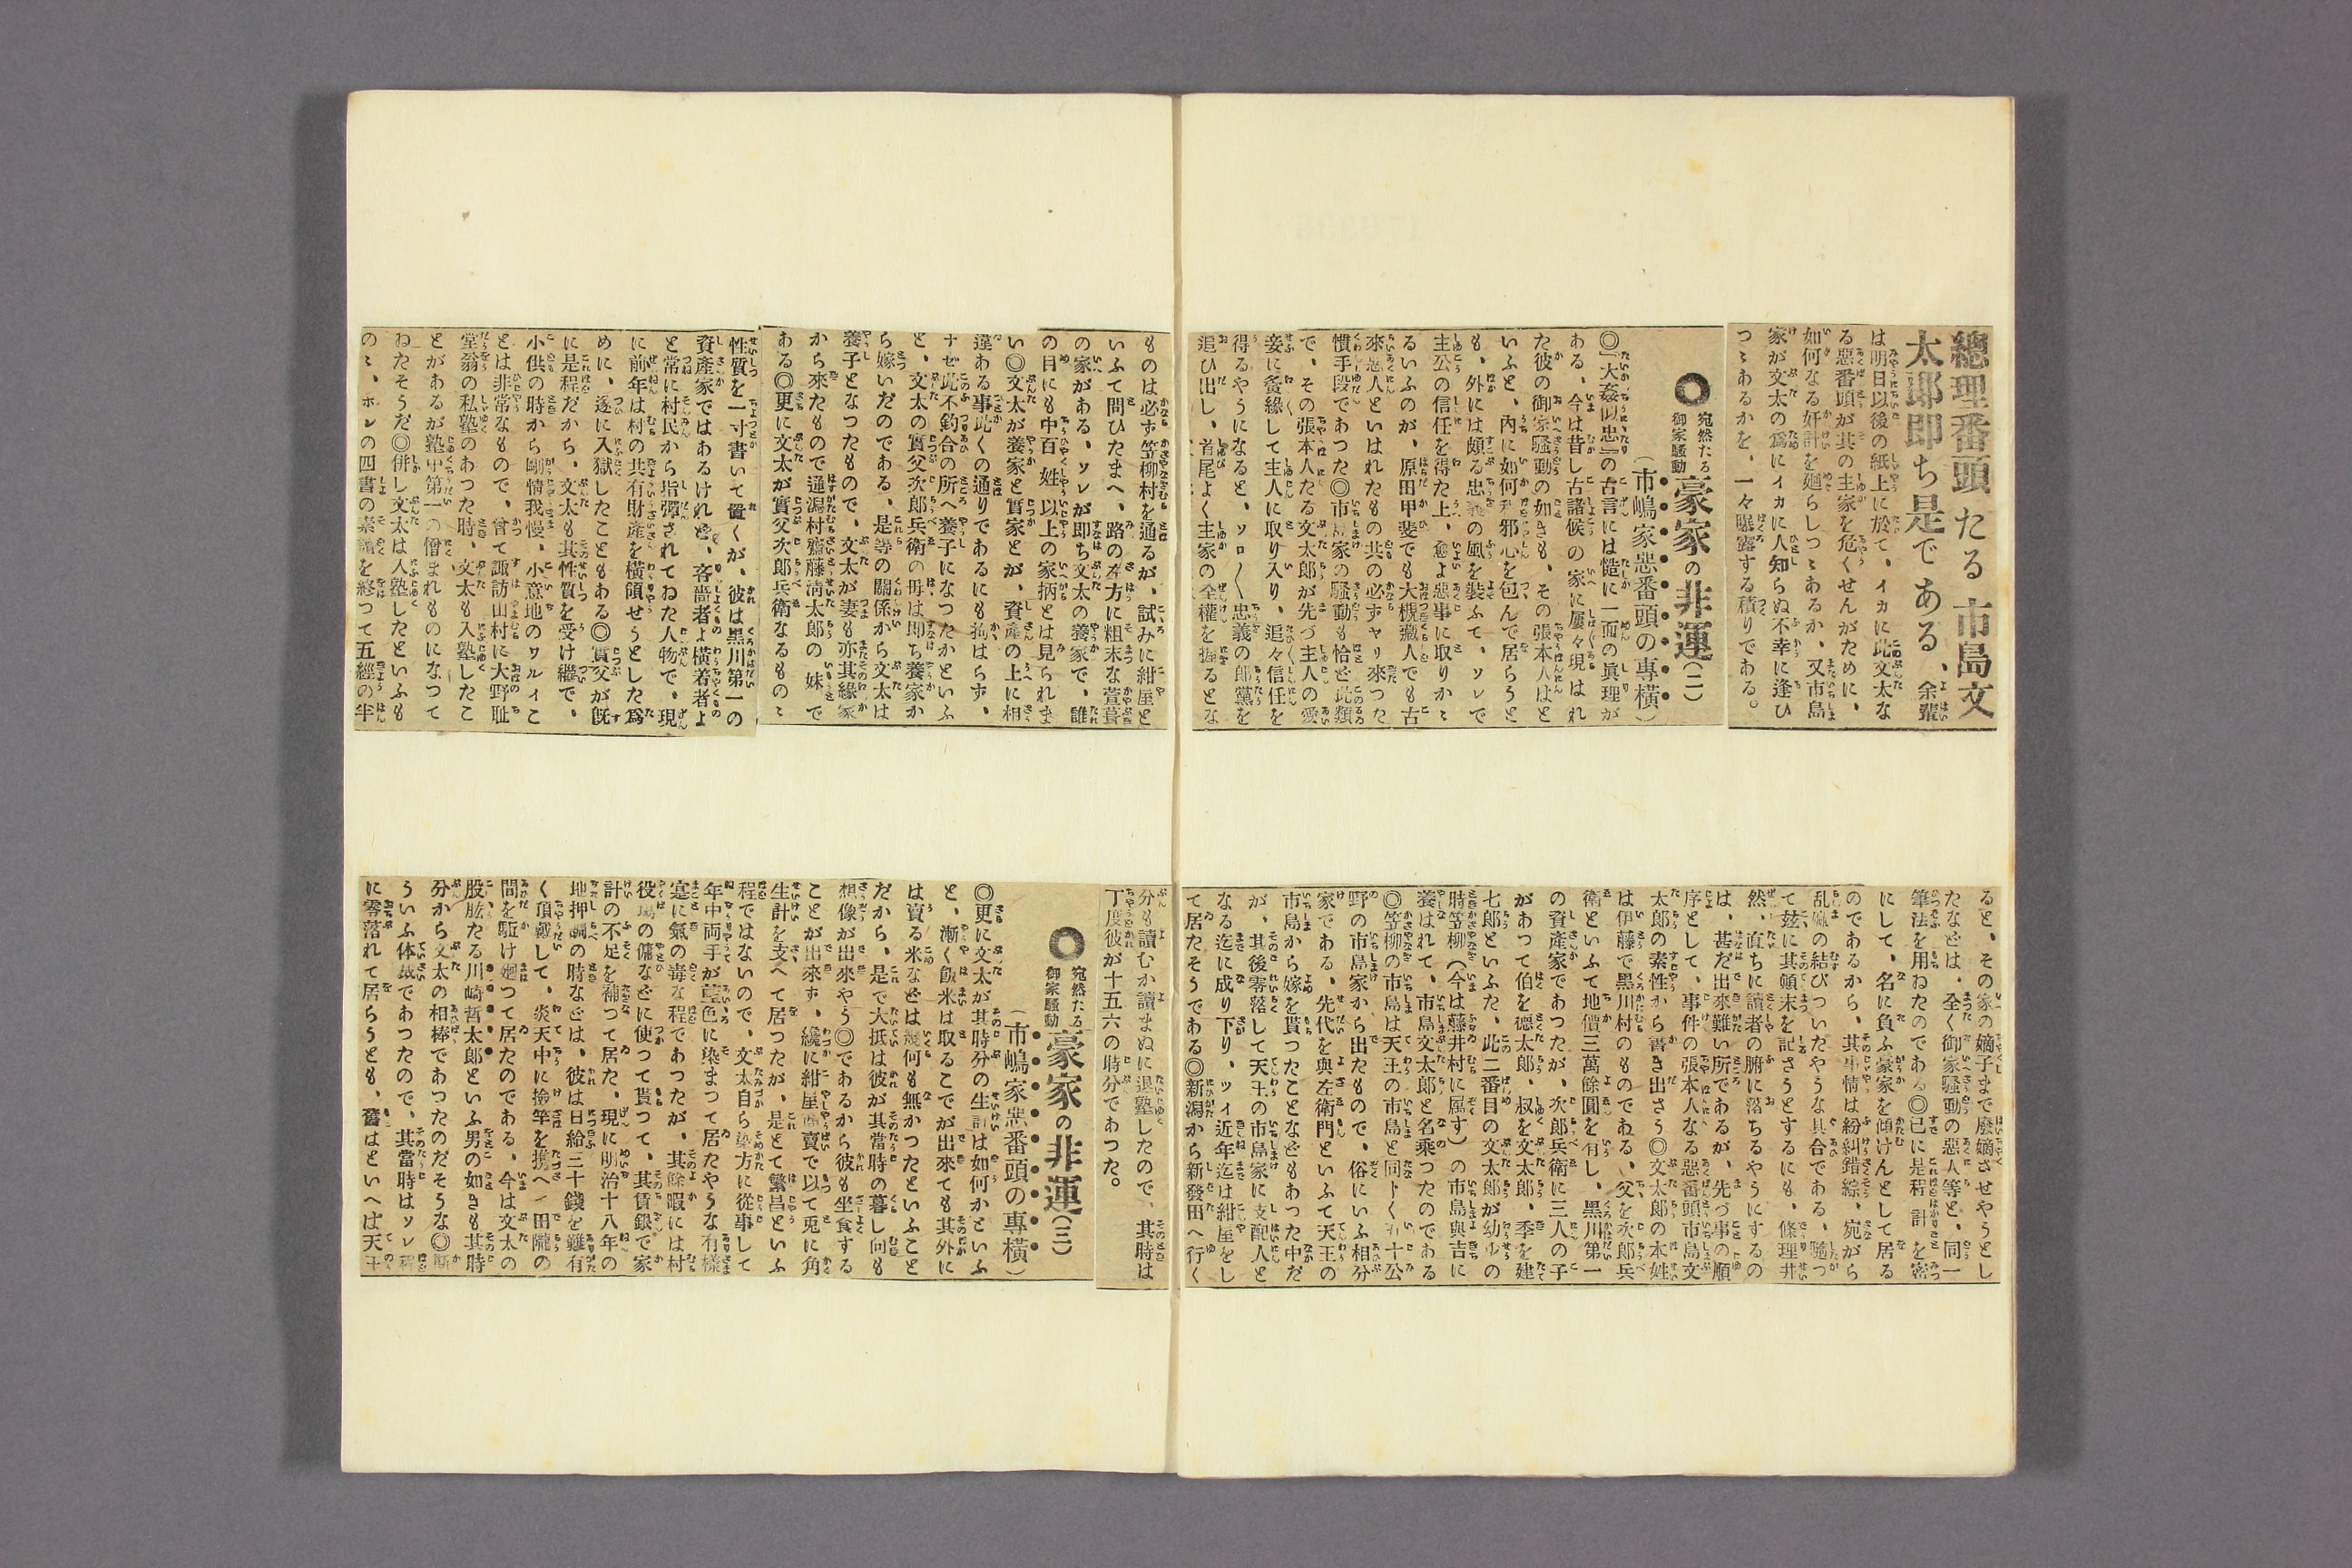 總理番頭たる市島文
太郎即ち是である、余輩
は明日以後の紙上に於て、イカに此文太な
る惡番頭が其の主家を危くせんがために、
如何なる奸計を廻らしつゝあるか、又市島
家が文太の爲にイカに人知らぬ不幸に逢ひ
つゝあるかを、一々曝露する積りである。
◎宛然たる御家騷動豪家の非運(二)
(市嶋家惡番頭の專橫)
◎『大姦似忠』の古言には慥に一面の眞理が
ある、今は昔し古諸侯の家に屢々現はれ
た彼の御家騷動の如きも、その張本人はと
いふと、內に如何な邪心を包んで居らうと
も、外には頗る忠義の風を裝ふて、ソレで
主公の信任を得た上、愈よ惡事に取りかゝ
るいふのが、原田甲斐でも大槻藏人でも古
來惡人といはれたもの共の必ずヤリ來つた
慣手段であつた◎市島家の騷動も恰ど此類
で、その張本人たる文太郎が先づ主人の愛
妾に夤緣して主人に取り入り、追々信任を
得るやうになると、ソロ〱忠義の郎黨を
追ひ出し、首尾よく主家の全權を握るとな
ると、その家の嫡子まで廢嫡させやうとし
たなどは、全く御家騷動の惡人等と、同一
筆法を用ゐたのである◎已に是程計を密
にして、名に負ふ豪家を傾けんとして居る
のであるから、其事情は紛糾錯綜、宛がら
乱麻の結びついたやうな具合である、隨つ
て玆に其顛末を記さうとするにも、條理井
然、直ちに讀者の腑に落ちるやうにするの
は、甚だ出來難い所であるが、先づ事の順
序として、事件の張本人なる惡番頭市島文
太郎の素性から書き出さう◎文太郎の本姓
は伊藤で黑川村のものである、父を次郎兵
衛といふて地價三萬餘圓を有し、黑川第一
の資產家であつたが、次郎兵衛に三人の子
があつて伯を德太郎、叔を文太郎、季を建
七郎といふた、此二番目の文太郎が幼少の
時笠柳(今は藤井村に属す)の市島與吉に
養はれて、市島文太郎と名乘つたのである
◎笠柳の市島は天王の市島と同トく五十公
野の市島家から出たもので、俗にいふ相分
家である、先代を與左衛門といふて天王の
市島から嫁を貰つたことなどもあつた中だ
が、其後零落して天王の市島家に支配人と
なる迄に成り下り、ツイ近年迄は紺屋をし
て居たそうである◎新潟から新發田へ行く
ものは必ず笠柳村を通るが、試みに紺屋と
いふて問ひたまへ、路の左方に粗末な萱葺
の家がある、ソレが即ち文太の養家で、誰
の目にも中百姓以上の家柄とは見られま
い◎文太が養家と實家とが、資產の上に相
違ある事此くの通りであるにも拘はらず、
ナゼ此不釣合の所へ養子になつたかといふ
と、文太の實父次郎兵衛の母は即ち養家か
ら嫁いだのである、是等の關係から文太は
養子となつたもので、文太が妻も亦其緣家
から來たもので通潟村齋藤淸太郎の妹で
ある◎更に文太が實父次郎兵衛なるものゝ
性質を一寸書いて置くが、彼は黑川第一の
資產家ではあるけれど、吝嗇者よ橫着者よ
と常に村民から指彈されてゐた人物で、現
に前年は村の共有財產を橫領せうとした爲
めに、遂に入獄したこともある◎實父が旣
に是程だから、文太も其性質を受け繼で、
小供の時から剛情我慢、小意地のワルイこ
とは非常なもので、曾て諏訪山村に大野耻
堂翁の私塾のあつた時、文太も入塾したこ
とがあるが塾中第一の僧まれものになつて
ゐたそうだ◎併し文太は入塾したといふも
のゝ、ホンの四書の素讀を終つて五經の半
分も讀むか讀まぬに退塾したので、其時は
丁度彼が十五六の時分であつた。
◎宛然たる御家騷動豪家の非運(三)
(市嶋家惡番頭の專橫)
◎更に文太が其時分の生計は如何かといふ
と、漸く飯米は取るこでが出來ても其外に
は賣る米などは幾何も無かつたといふこと
だから、是で大抵は彼が其當時の暮し向も
想像が出來やう◎であるから彼も坐食する
ことが出來ず、纔に紺屋商賣で以て兎に角
生計を支へて居つたが、是とて繁昌といふ
程ではないので、文太自ら染方に從事して
年中両手が藍色に染まつて居たやうな有樣
寔に氣の毒な程であつたが、其餘暇には村
役塲の傭などに使つて貰つて、其賃銀で家
計の不足を補つて居た、現に明治十八年の
地押調の時などは、彼は日給三十錢を難有
く頂戴して、炎天中に撿竿を携へ、田隴の
間を駈け廻つて居たのである、今は文太の
股肱たる川崎哲太郎といふ男の如きも其時
分から文太の相棒であつたのだそうな◎斯
ういふ体裁であつたので、其當時はソレ程
に零落れて居らうとも、舊はといへば天王